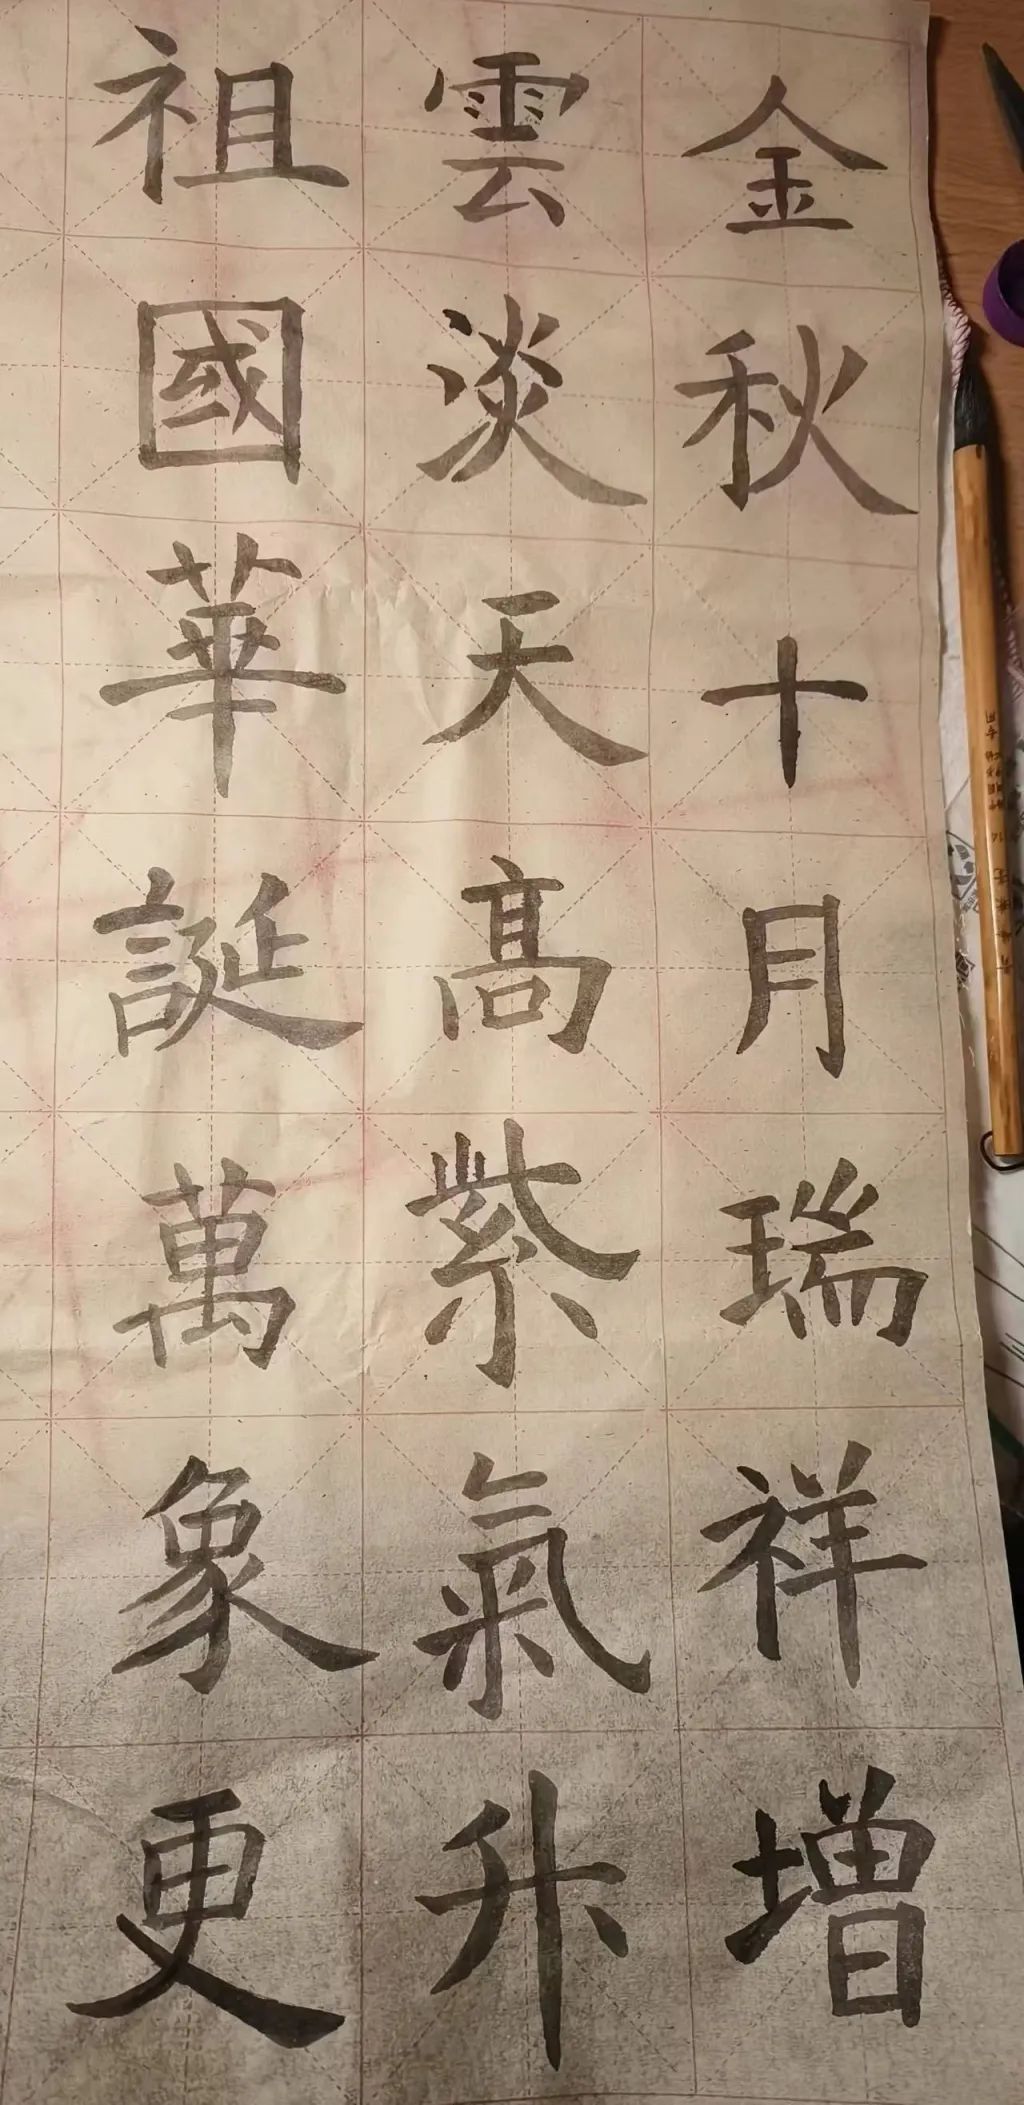 金秋十月瑞祥增
雲淡天高紫氣升
祖國華誕萬象更